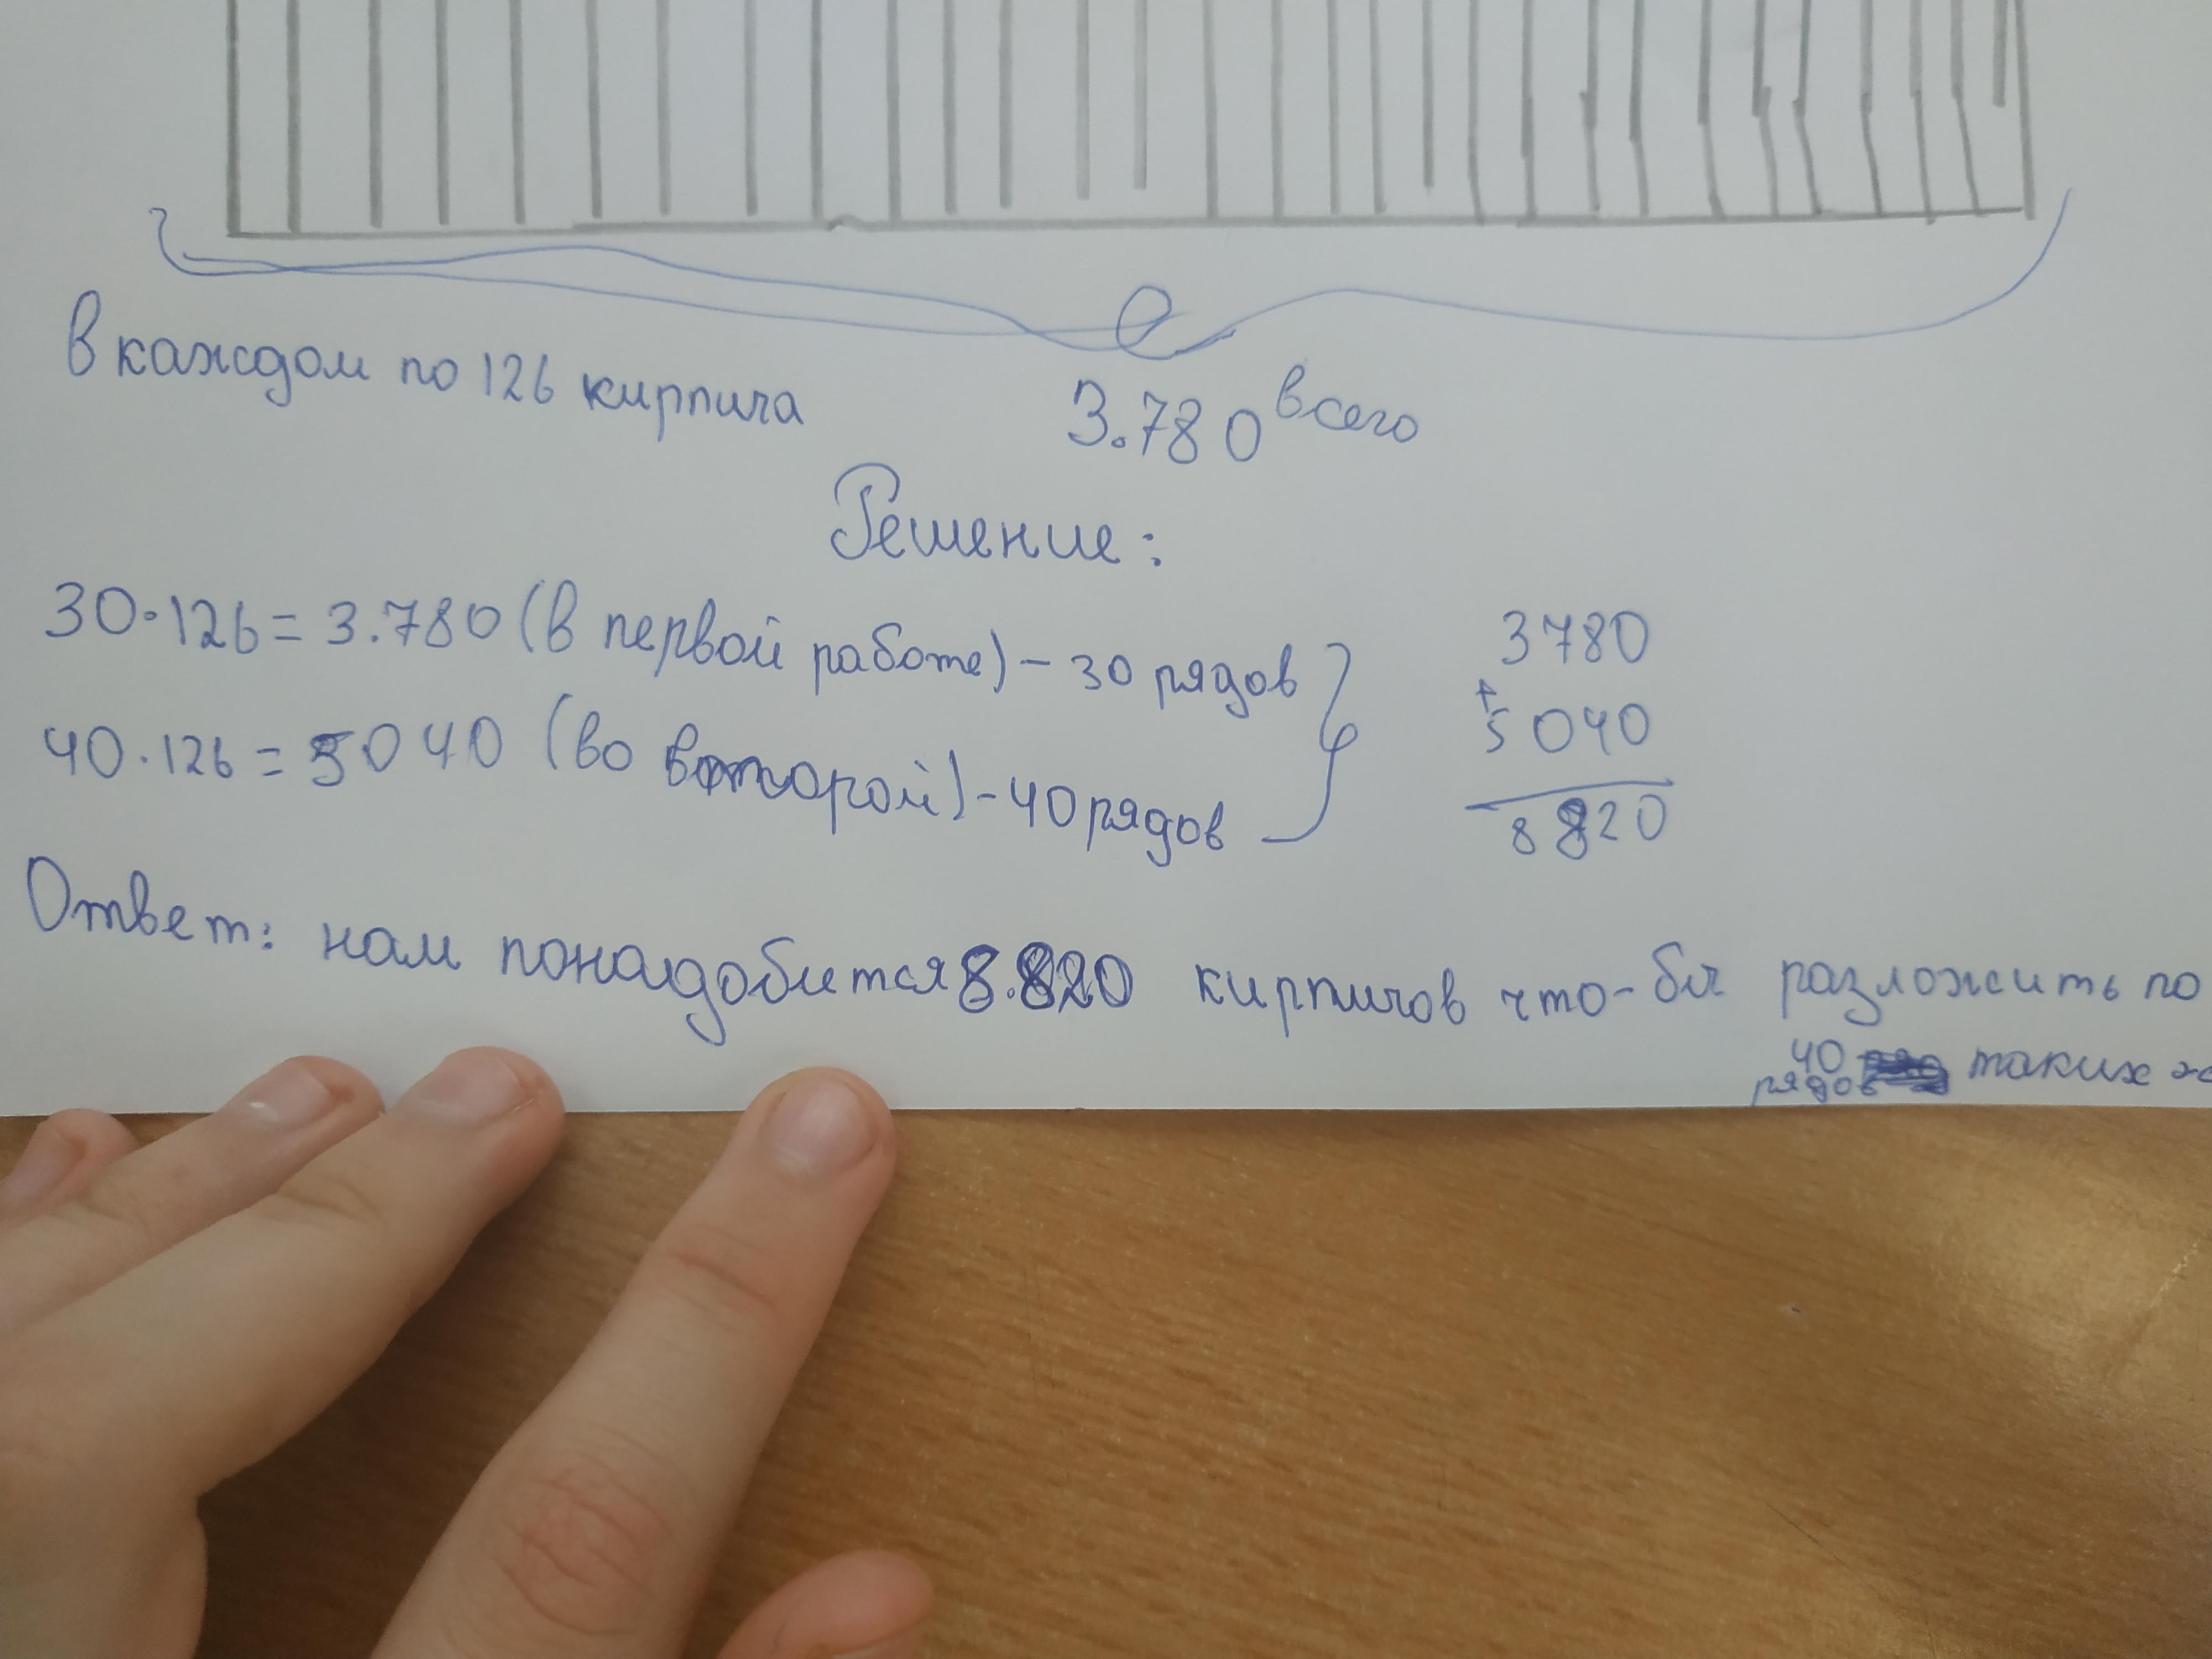 В каждом по 126 кирпича
3.780 всего
Решение:
30·126=3.780 (в первой работе) - 30 рядов
40·126=5040 (во второй) - 40 рядов
3780
+
5040
8820
Ответ: нам понадобится 8.820 кирпичов что-бы разложить по
40 таких
рядов